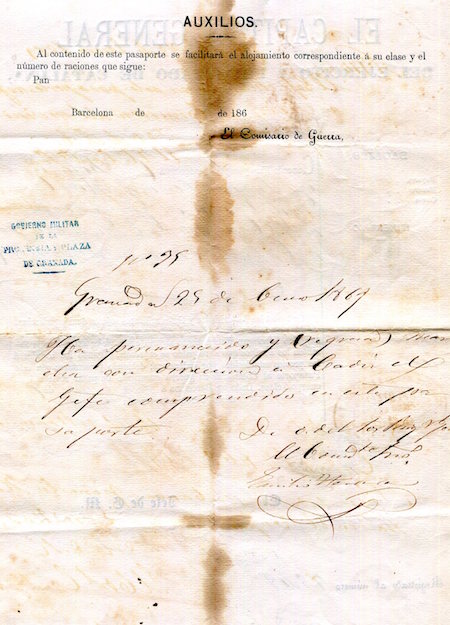 AUXILIOS.
Al contenido de este pasaporte se facilitará el alojamiento correspondiente á su clase y el
número de raciones que sigue:
Pan
Barcelona de de 186
El Comisario de Guerra,
GOBIERNO MILITAR
DE LA
PROVINCIA Y PLAZA
DE GRANADA.
nº 35
Granada 25 de Enero 1869
Ha permanecido y regresa
con direccion á Cadiz el
Gefe comprendido en este pa
saporte.
De o. del
El Comte